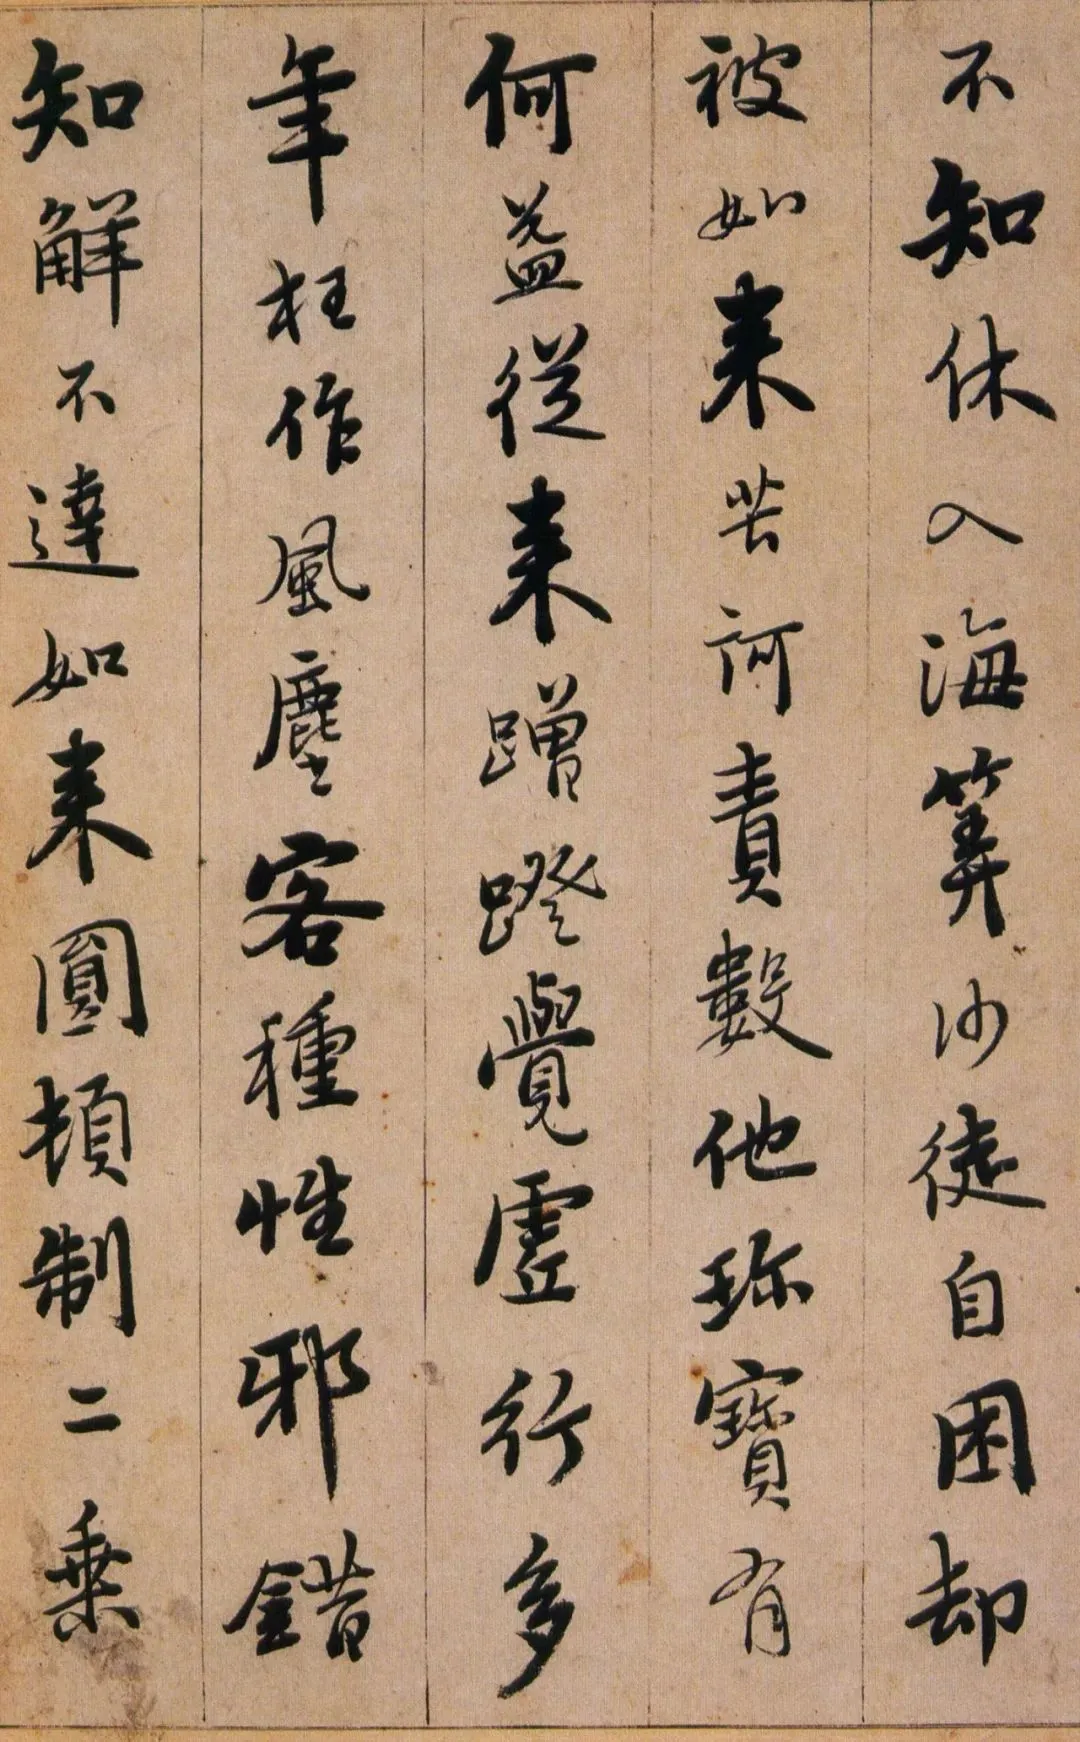 不知休入海筭沙徒自困却
被如来苦訶責數他珎寶有
何益從来蹭蹬覺虗行多
年枉作風塵客種性邪錯
知解不達如来圓頓制二乗